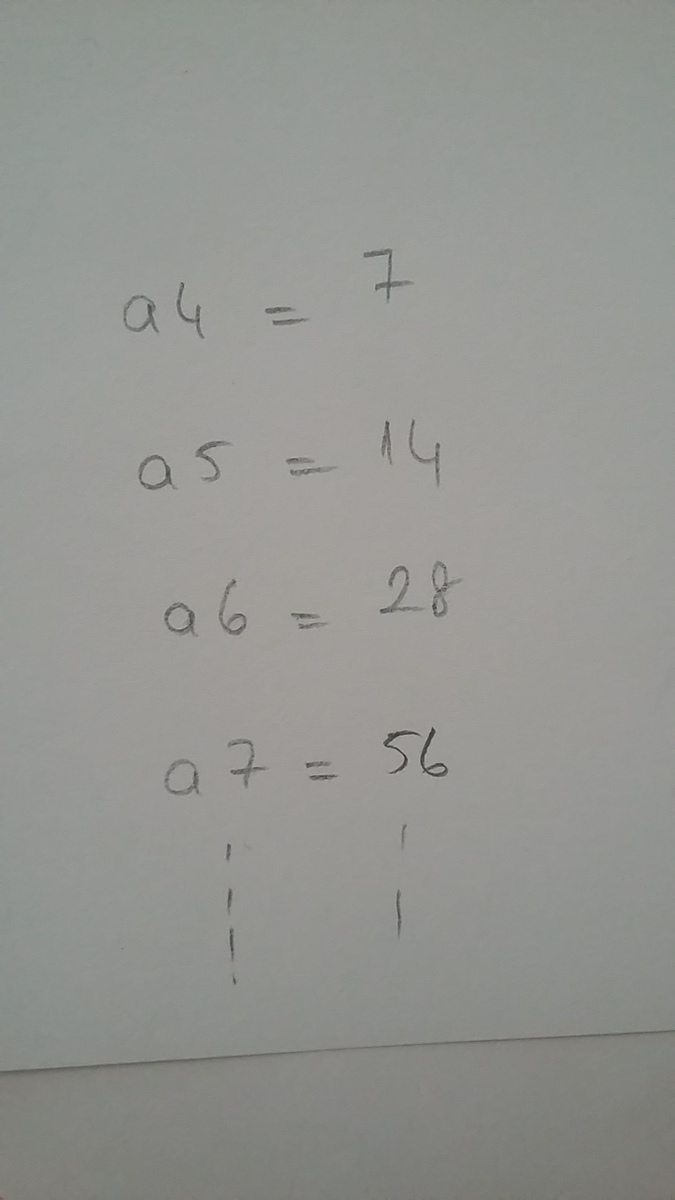 a4 = 7
a5 = 14
a6 = 28
a7 = 56